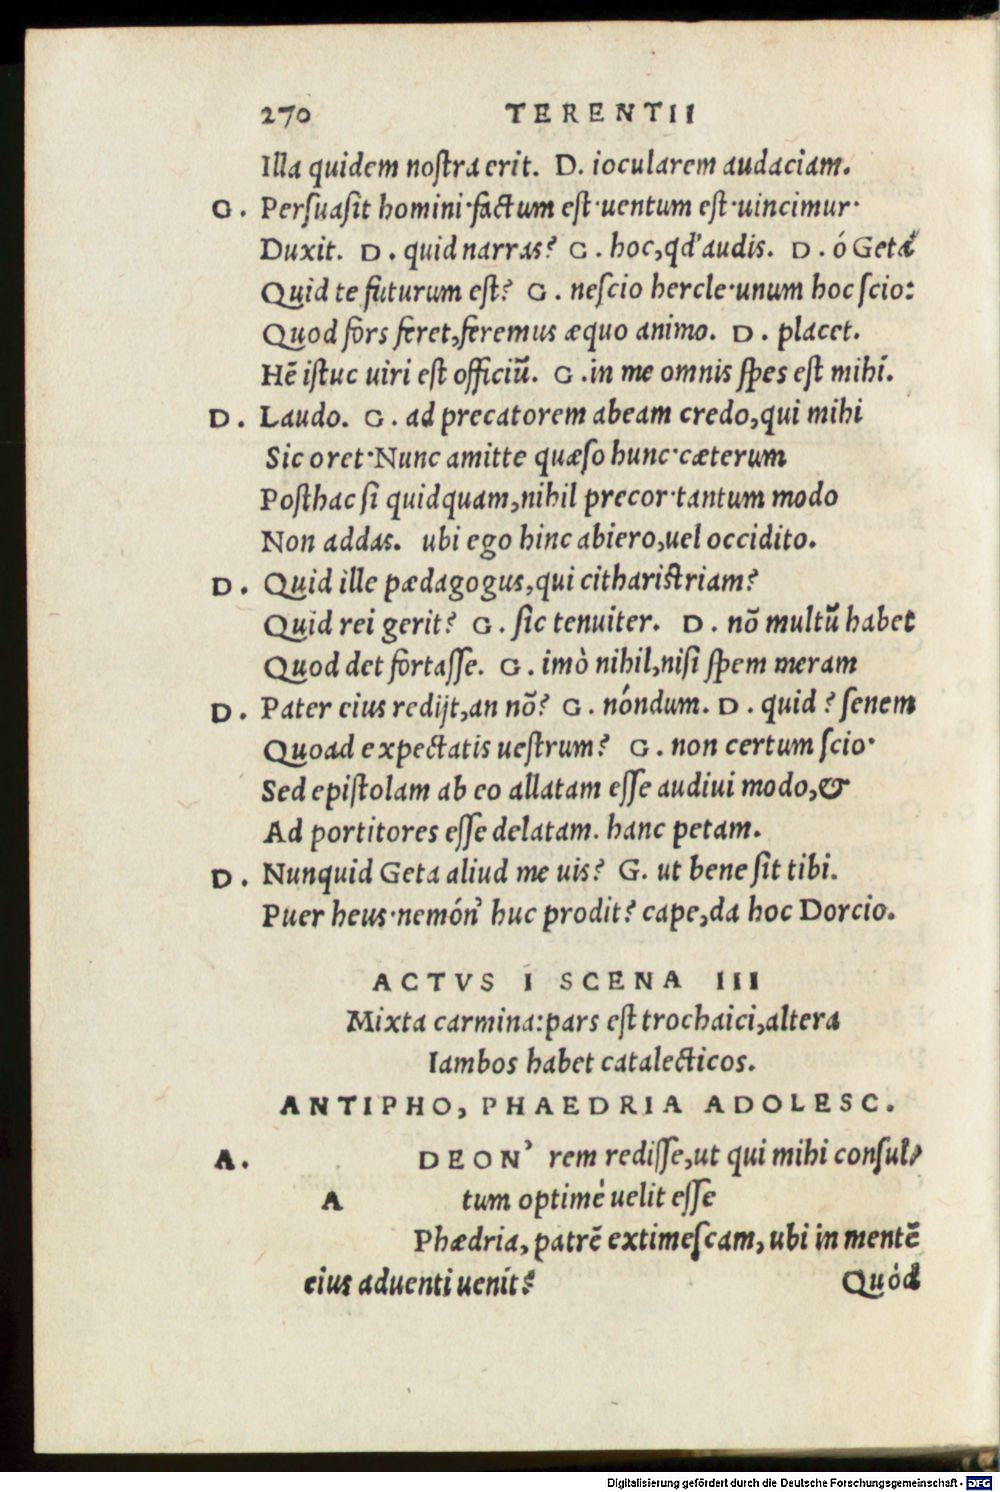 270 TERENTII
Illa quidem noſtra erit. D. iocularem audaciam.
G. Perſuaſit homini·factum eſt·uentum eſt·uincimur·
Duxit. D. quid narras? G. hoc, qd' audis. D. ó Geta
Quid te futurum eſt? G. neſcio hercle·unum hoc ſcio:
Quod fors feret, feremus æquo animo. D. placet.
Hē iſtuc uiri eſt officiū. G. in me omnis ſpes eſt mihí.
D. Laudo. G. ad precatorem abeam credo, qui mihi
Sic oret·Nunc amitte quæſo hunc·cæterum
Poſthac ſi quidquam, nihil precor·tantum modo
Non addas. ubi ego hinc abiero, uel occidito.
D. Quid ille pædagogus, qui cithariſtriam?
Quid rei gerit? G. ſic tenuiter. D. nō multū habet
Quod det fortaſſe. G. imò nihil, niſi ſpem meram
D. Pater eius redijt, an nō? G. nóndum. D. quid? ſenem
Quoad expectatis ueſtrum? G. non certum ſcio·
Sed epiſtolam ab eo allatam eſſe audiui modo, &
Ad portitores eſſe delatam. hanc petam.
D. Nunquid Geta aliud me uis? G. ut bene ſit tibi.
Puer heus·nemón' huc prodit? cape, da hoc Dorcio.
ACTVS I SCENA III
Mixta carmina: pars eſt trochaici, altera
Iambos habet catalecticos.
ANTIPHO, PHAEDRIA ADOLESC.
A. DEON' rem rediſſe, ut qui mihi conſul-
A tum optimè uelit eſſe
Phædria, patrē extimeſcam, ubi in mentē
eius aduenti uenit?
Quòd
Digitalisierung gefördert durch die Deutsche Forschungsgemeinschaft - DFG